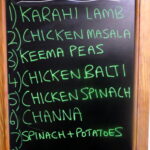 1) KARAHI LAMB
2) CHICKEN MASALA
3) KEEMA PEAS
4) CHICKEN BALTI
5) CHICKEN SPINACH
6) CHANNA
7) SPINACH + POTATOES